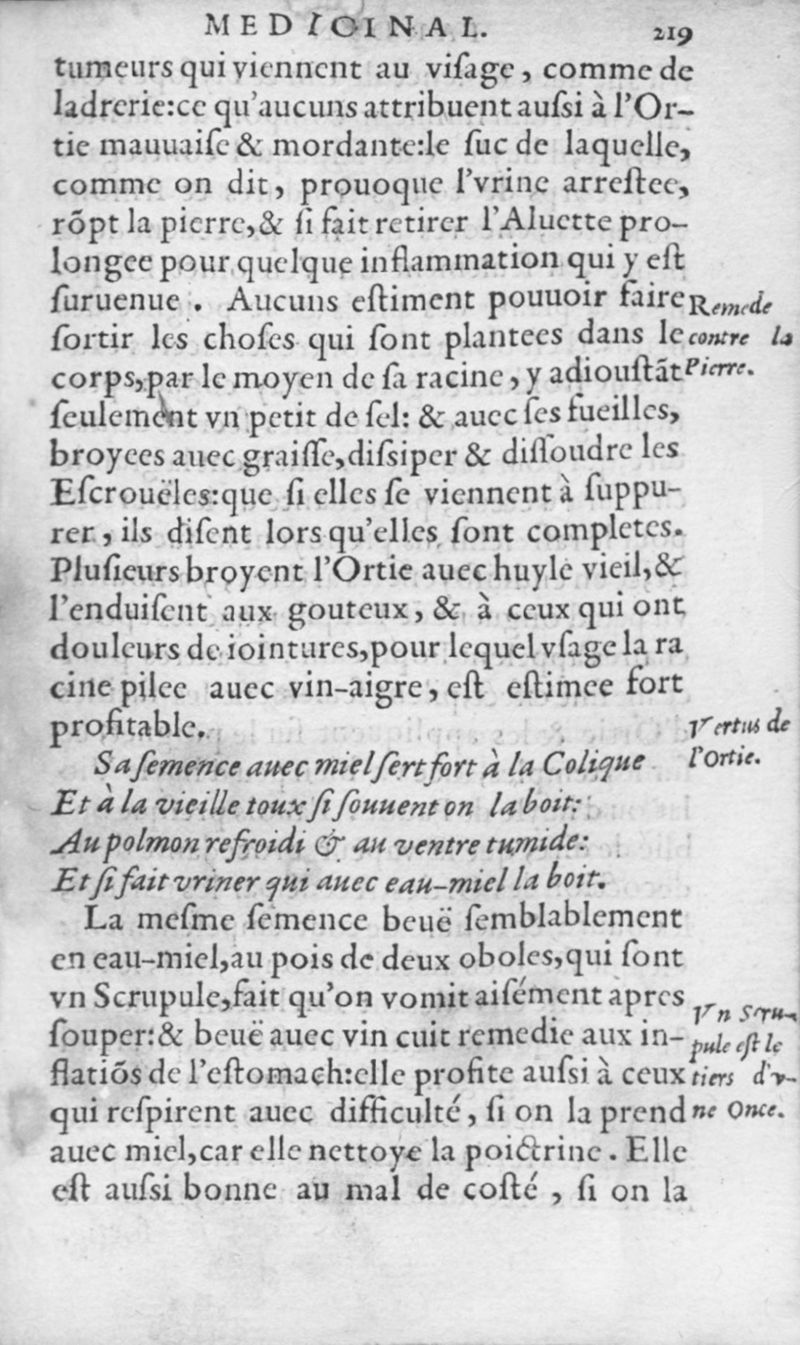 MEDICINAL. 219
tumeurs qui viennent au viſage, comme de
ladrerie:ce qu'aucuns attribuent auſsi à l'Or-
tie mauuaiſe & mordante:le ſuc de laquelle,
comme on dit, prouoque l'vrine arreſtee,
rõpt la pierre,& ſi fait retirer l'Aluette pro-
longee pour quelque inflammation qui y eſt
ſuruenue . Aucuns eſtiment pouuoir faire
ſortir les choſes qui ſont plantees dans le
corps, par le moyen de ſa racine, y adiouſtãt
ſeulement vn petit de ſel: & auec ſes fueilles,
broyees auec graiſſe,diſsiper & diſſoudre les
Eſcrouëles:que ſi elles ſe viennent à ſuppu-
rer, ils diſent lors qu'elles ſont completes.
Pluſieurs broyent l'Ortie auec huyle vieil,&
l'enduiſent aux gouteux, & à ceux qui ont
douleurs de iointures,pour lequel vſage la ra
cine pilee auec vin-aigre, eſt eſtimee fort
profitable.
Sa ſemence auec miel ſert fort à la Colique
Et à la vieille toux ſi ſouuent on la boit:
Au polmon refroidi & au ventre tumide:
Et ſi fait vriner qui auec eau-miel la boit.
La meſme ſemence beuë ſemblablement
en eau-miel,au pois de deux oboles,qui ſont
vn Scrupule,fait qu'on vomit aiſément apres
ſouper:& beuë auec vin cuit remedie aux in-
flatiõs de l'eſtomach:elle profite auſsi à ceux
qui reſpirent auec difficulté, ſi on la prend
auec miel,car elle nettoye la poictrine . Elle
eſt auſsi bonne au mal de coſté , ſi on la
Remede
contre la
Pierre.
Vertus de
l'Ortie.
Vn Scru-
pule eſt le
tiers d'v-
ne Once.